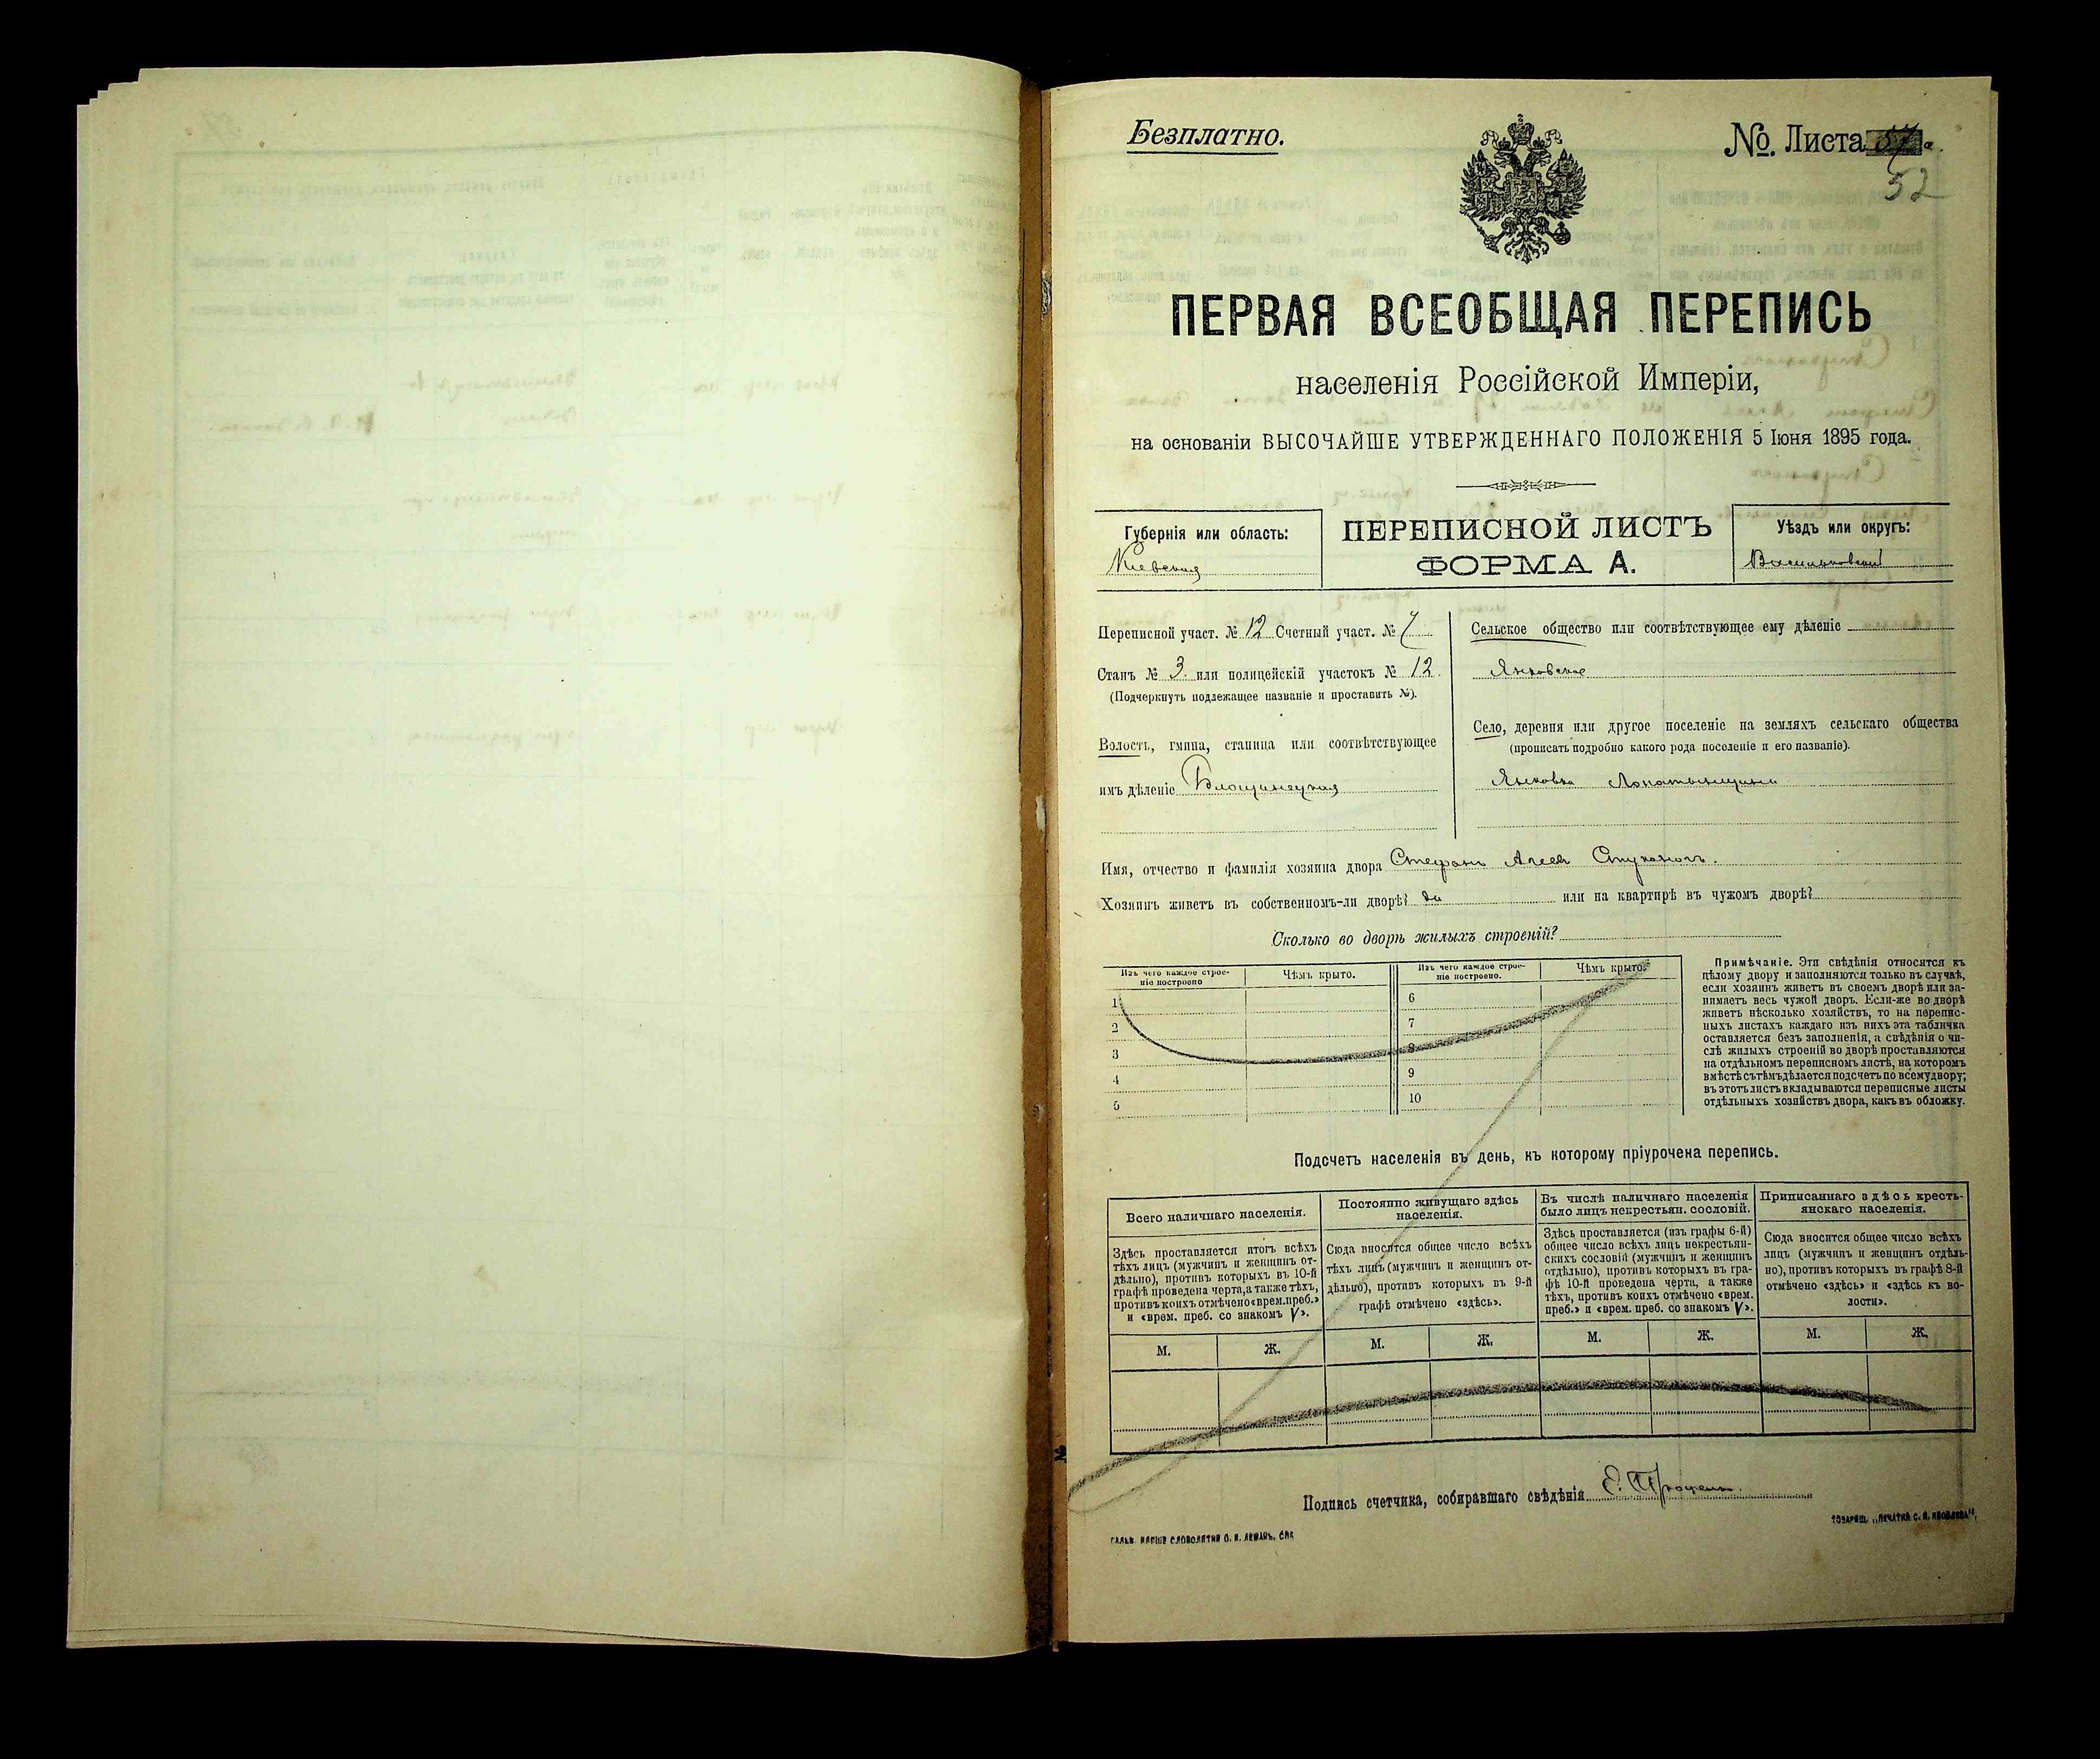 Безплатно.
№. Листа 57 а.
52
ПЕРВАЯ ВСЕОБЩАЯ ПЕРЕПИСЬ
населенія Россійской Имперіи,
на основаніи ВЫСОЧАЙШЕ УТВЕРЖДЕННАГО ПОЛОЖЕНІЯ 5 Іюня 1895 года.
Губернія или область:
Кіевская
ПЕРЕПИСНОЙ ЛИСТЪ
ФОРМА А.
Уѣздъ или округъ:
Васильковскій
Переписной участ. № 12 Счетный участ. № 7
Станъ № 3. или полицейскій участокъ № 12.
(Подчеркнуть подлежащее названіе и проставить №).
Волость, гмина, станица или соотвѣтствующее
имъ дѣленіе Блощинецкая
Сельское общество или соотвѣтствующее ему дѣленіе
Янковское
Село, деревня или другое поселеніе на земляхъ сельскаго общества
(прописать подробно какого рода поселеніе и его названіе).
Янковка Лопатынщина
Имя, отчество и фамилія хозяина двора Стефанъ
Хозяинъ живетъ въ собственномъ-ли дворѣ? да или на квартирѣ въ чужомъ дворѣ?
Сколько во дворѣ жилыхъ строеній?
Изъ чего каждое строе-
ніе построено
Чѣмъ крыто.
Изъ чего каждое строе-
ніе построено.
Чѣмъ крыто.
1
2
3
4
5
6
7
8
9
10
Примѣчаніе. Эти свѣдѣнія относятся къ
цѣлому двору и заполняются только въ случаѣ,
если хозяинъ живетъ въ своемъ дворѣ или за-
нимаетъ весь чужой дворъ. Если-же во дворѣ
живетъ нѣсколько хозяйствъ, то на перепис-
ныхъ листахъ каждаго изъ нихъ эта табличка
оставляется безъ заполненія, а свѣдѣнія о чи-
слѣ жилыхъ строеній во дворѣ проставляются
на отдѣльномъ переписномъ листѣ, на которомъ
вмѣстѣ съ тѣмъ дѣлается подсчетъ по всему двору;
въ этотъ листъ вкладываются переписные листы
отдѣльныхъ хозяйствъ двора, какъ въ обложку.
Подсчетъ населенія въ день, къ которому пріурочена перепись.
Всего наличнаго населенія.
Здѣсь проставляется итогъ всѣхъ
тѣхъ лицъ (мужчинъ и женщинъ от-
дѣльно), противъ которыхъ въ 10-й
графѣ проведена черта, а также тѣхъ,
противъ коихъ отмѣчено «врем. преб.»
и «врем. преб. со знакомъ V».
Постоянно живущаго здѣсь
населенія.
Сюда вносится общее число всѣхъ
тѣхъ лицъ (мужчинъ и женщинъ от-
дѣльно), противъ которыхъ въ 9-й
графѣ отмѣчено «здѣсь».
Въ числѣ наличнаго населенія
было лицъ некрестьян. сословій.
Здѣсь проставляется (изъ графы 6-й)
общее число всѣхъ лицъ некрестьян-
скихъ сословій (мужчинъ и женщинъ
отдѣльно), противъ которыхъ въ гра-
фѣ 10-й проведена черта, а также
тѣхъ, противъ коихъ отмѣчено «врем.
преб.» и «врем. преб. со знакомъ V».
Приписаннаго здѣсь кресть-
янскаго населенія.
Сюда вносится общее число всѣхъ
лицъ (мужчинъ и женщинъ отдѣль-
но), противъ которыхъ въ графѣ 8-й
отмѣчено «здѣсь» и «здѣсь къ во-
лости».
М. Ж. М. Ж. М. Ж. М. Ж.
Подпись счетчика, собиравшаго свѣдѣнія Е.
СЛОВОЛИТНИ О. И. ЛЕМАНЪ. СПБ
ТОВАРИЩ. „ПЕЧАТНЯ С. П. ЯКОВЛЕВА".